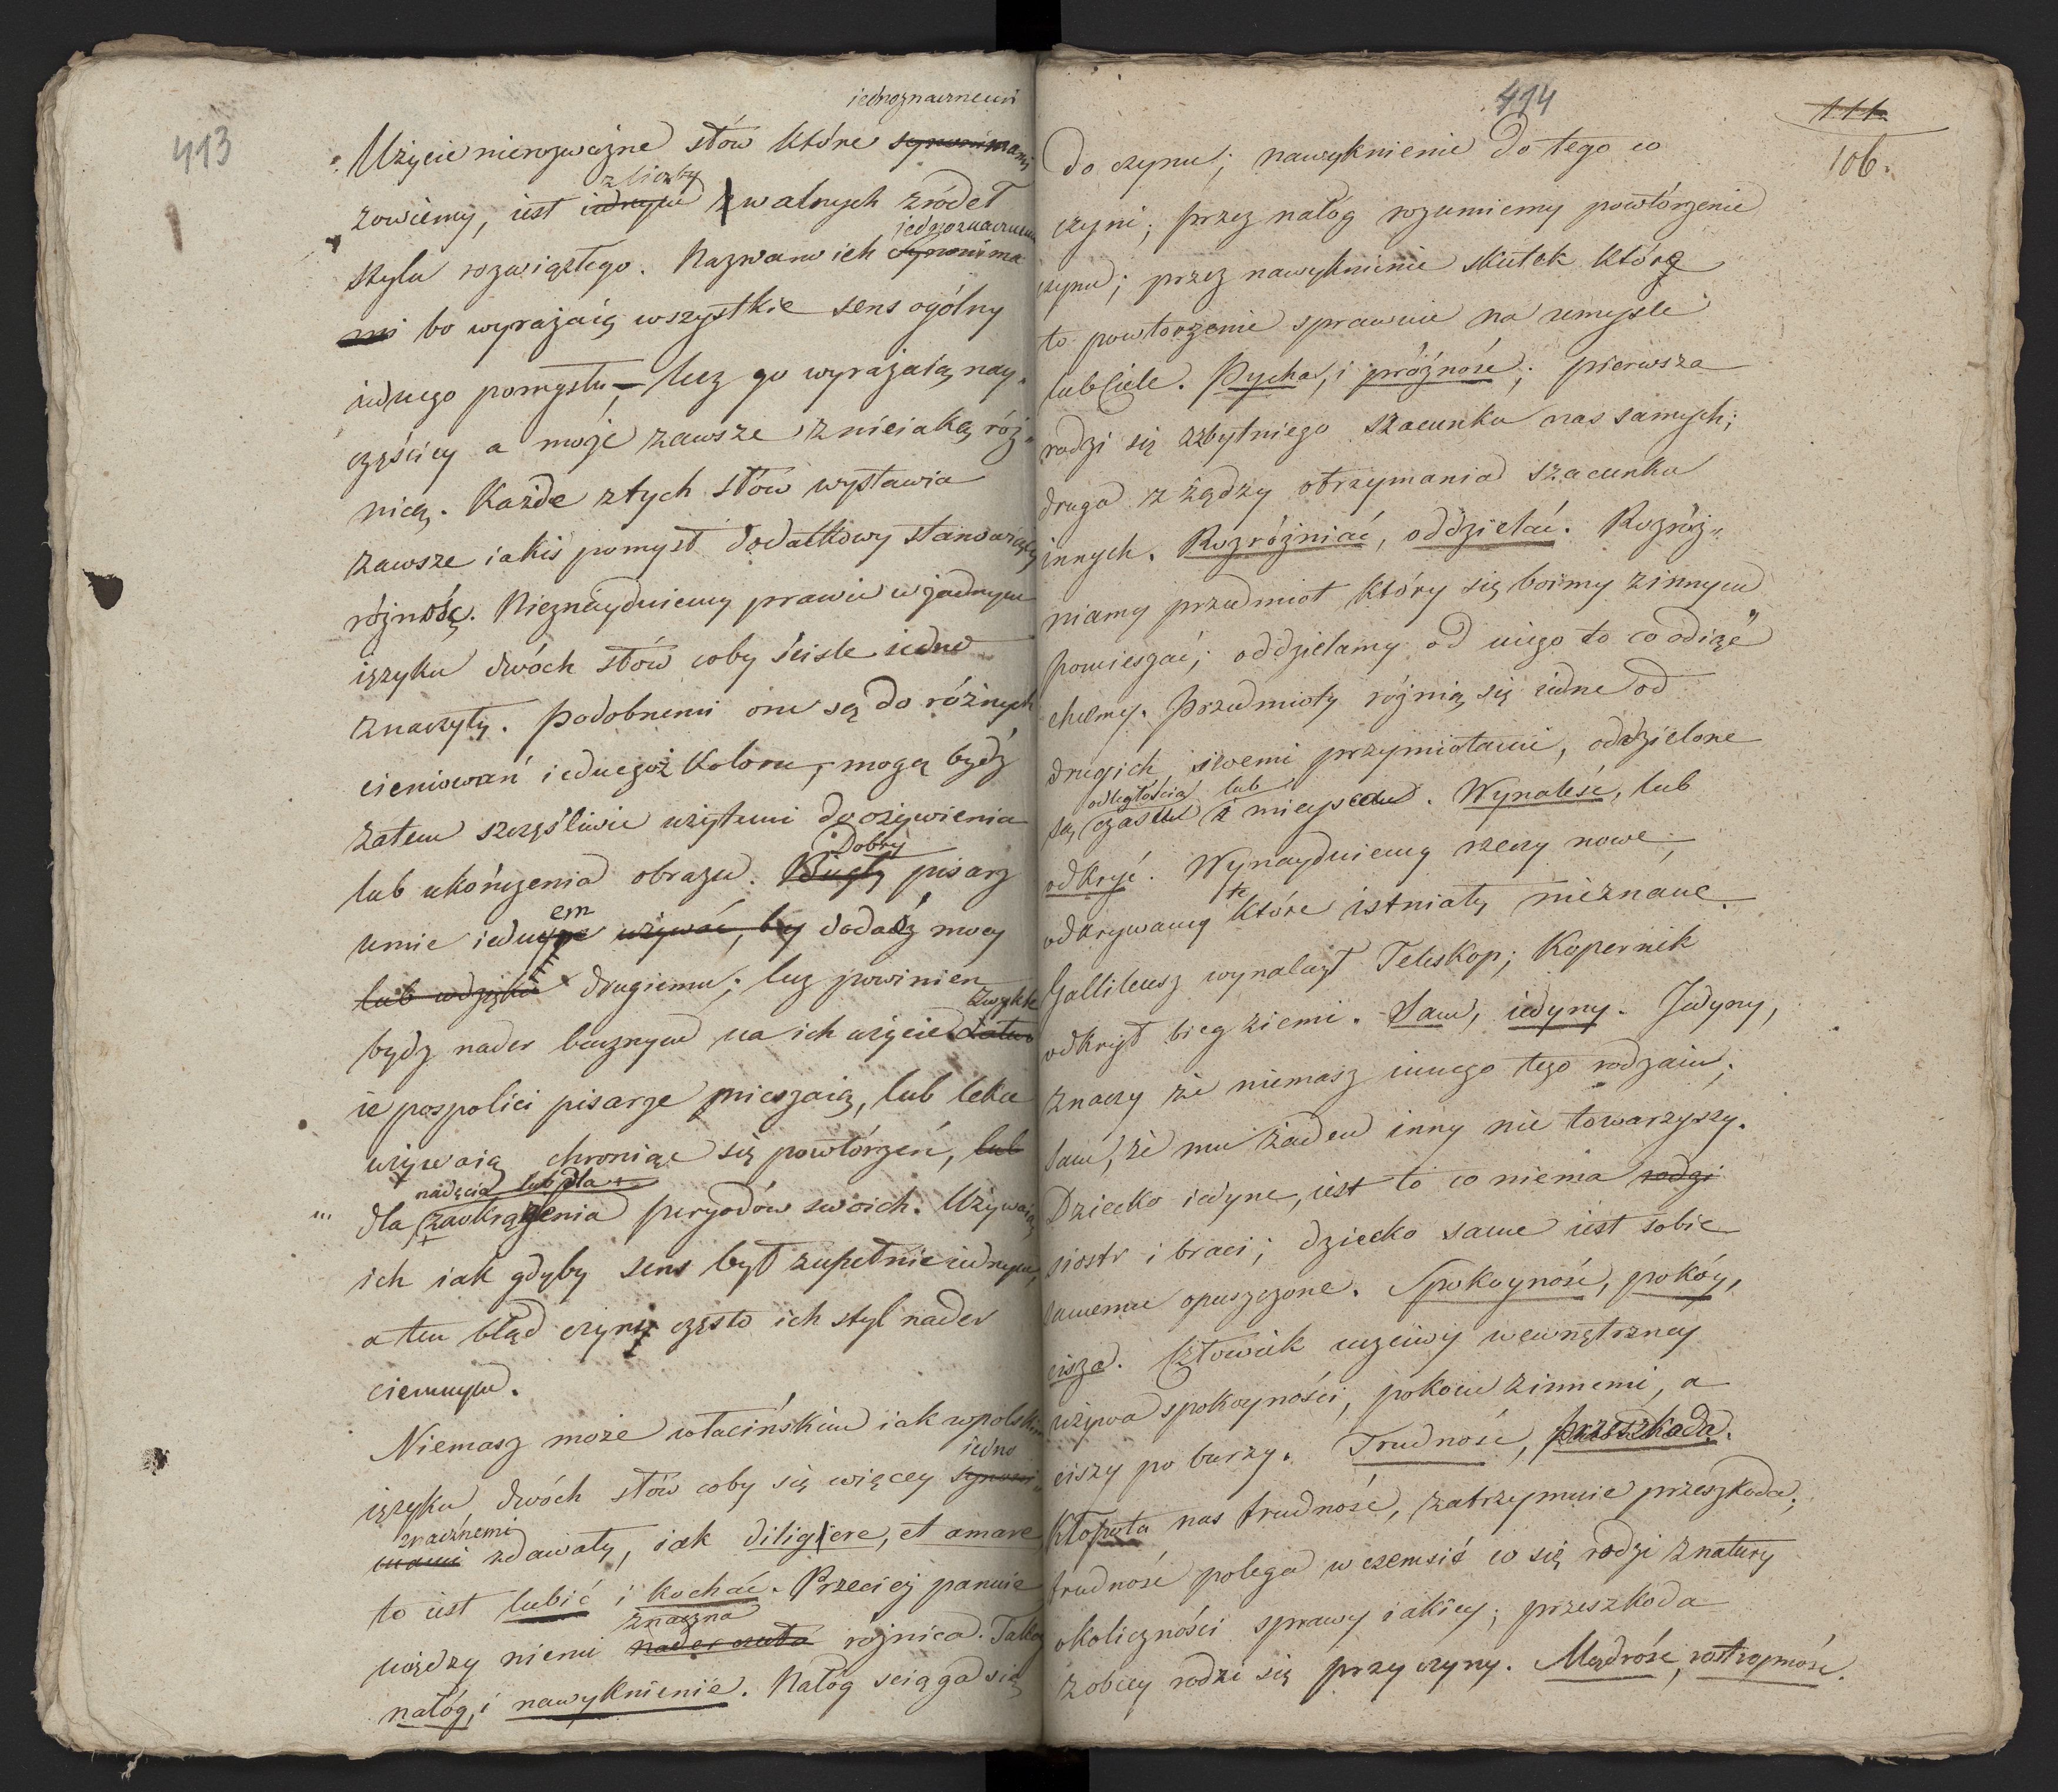 413
iednoznacznemi
Użycie nierozważne słów które synonimami
z liczby
zowiemy, iest iednym z walnych źródeł
iednoznacznemi
stylu rozwiązłego. Nazwano ich Synonima
mi bo wyrażaią wszystkie sens ogólny
iednego pomysłu, – lecz go wyrażaią nay„
częściey a może zawsze z nieiaką róż„
nicą. Każde z tych słów wystawia
zawsze iakiś pomysł dodatkowy stanowiący
różność. Nieznayduiemy prawie w żadnym
ięzyku dwóch słów coby ściśle iedno
znaczyły. Podobnemi one są do różnych
cieniowań iednegoż koloru, mogą bydź
zatem szczęśliwie użytemi do ożywienia
Dobry
lub ukończenia obrazu. Biegły pisarz
em
umie iednym używać, by dodadź mocy
lub wdzięku drugiemu; lecz powinien
Zwykle
bydź nader bacznym na ich użycie. Łatwo
ie pospolici pisarze mieszaią, lub lekce
używaią chroniąc się powtórzeń, lub
nadęcia lub dla +
dla zaokrąglenia peryodów swoich. Używaią
ich iak gdyby sens był zupełnie iednym,
a ten błąd czyni często ich styl nader
ciemnym.
Niemasz może w łacińskim iak w polskim
iedno
ięzyku dwóch słów coby się więcey synoni„
znacznemi
mami zdawały, iak diligere, et amare
to iest lubić i kochać. Przecież panuie
znaczna
między niemi nader czuła różnica. Także
nałóg, i nawyknienie. Nałóg ściąga się
414
111.
106.
do czynu; nawyknienie do tego co
czyni; przez nałóg rozumiemy powtórzenie
czynu; przez nawyknienie skutek który
to powtorzenie sprawuie na umyśle
lub ciele. Pycha, i próżność; pierwsza
rodzi się z zbytniego szacunku nas samych;
druga z żądzy otrzymania szacunku
innych. Rozróżniać, oddzielać. Rozróż„
niamy przedmiot który się boimy z innym
pomieszać; oddzielamy od niego to co odiąć
chcemy. Przedmioty różnią się iedne od
drugich swemi przymiotami, oddzielone
odległością lub
są czasem i mieyscem. Wynaleść, lub
odkryć. Wynayduiemy rzeczy nowe;
te
odkrywamy które istniały nieznane.
Gallileusz wynalazł Teleskop; Kopernik
odkrył bieg ziemi. Sam, iedyny. Jedyny,
znaczy że niemasz innego tego rodzaiu;
sam, że mu żaden inny nie towarzyszy.
Dziecko iedyne, iest to co niema rodzi
siostr i braci; dziecko same iest sobie
samemu opuszczone. Spokoyność, pokóy,
cisza. Człowiek uczciwy wewnętrzney
używa spokoyności, pokoiu z innemi, a
ciszy po burzy. Trudność, przeszkoda.
Kłopota nas trudność, zatrzymuie przeszkoda;
trudność polega w czemsiś co się rodzi z natury
okoliczności sprawy iakiey; przeszkoda
z obcey rodzi się przyczyny. Mądrość, roztropność.